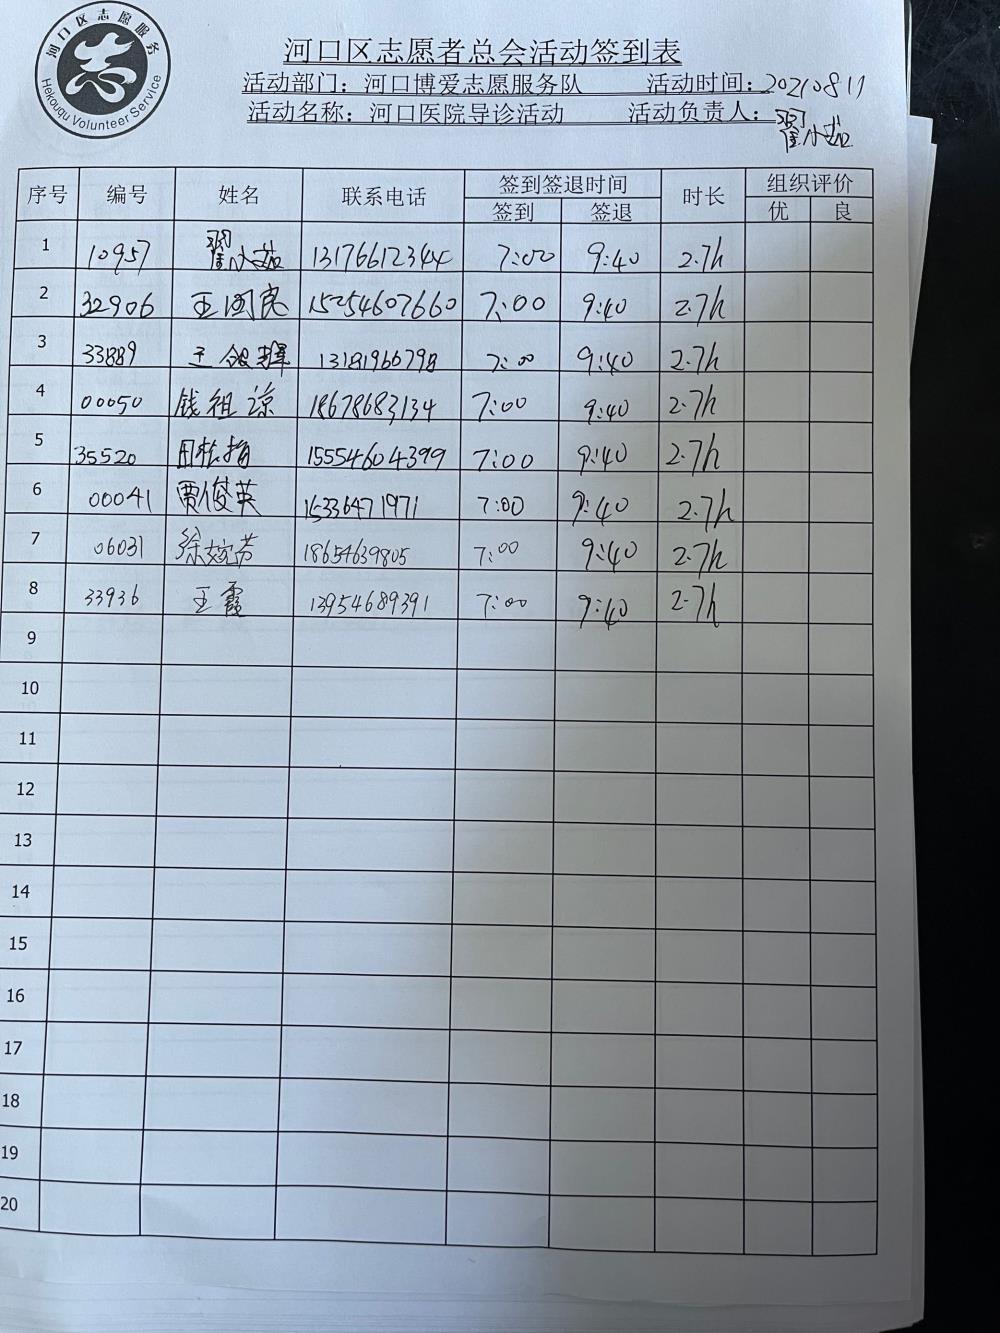 河口区志愿服务
Hekouqu Volunteer Service
河口区志愿者总会活动签到表
活动部门：河口博爱志愿服务队 活动时间：20210817
活动名称：河口医院导诊活动 活动负责人：翟小茹
序号 编号 姓名 联系电话 签到签退时间 时长 组织评价
签到 签退 优 良
1 10957 翟小茹 13176612344 7:00 9:40 2.7h
2 32906 王国亮 15254607660 7:00 9:40 2.7h
3 33889 王 13181966798 7:00 9:40 2.7h
4 00050 钱祖谅 18678683134 7:00 9:40 2.7h
5 35520 15554604399 7:00 9:40 2.7h
6 00041 贾俊英 15336471971 7:00 9:40 2.7h
7 06031 徐婉芳 18654639805 7:00 9:40 2.7h
8 33936 王霞 13954689391 7:00 9:40 2.7h
9
10
11
12
13
14
15
16
17
18
19
20